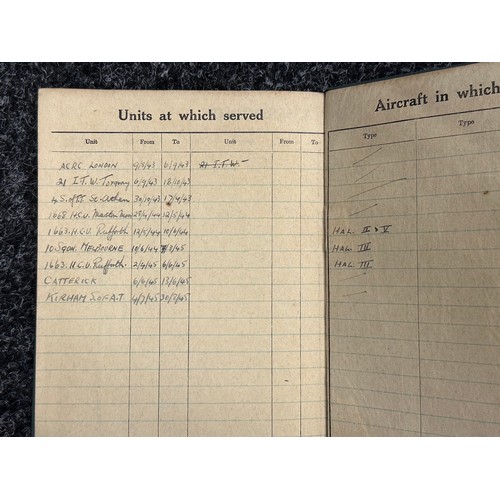 Units at which served
Unit From To Unit From To
ACRC LONDON 9/8/43 6/9/43 21 I.T.W.
21 I.T.W. Torquay 6/9/43 18/10/43
4 S. of TT St. Athan 30/10/43 17/4/44
1668 H.C.U. 25/4/44 12/5/44
1663. H.C.U. Rufforth 12/5/44 10/6/44
10 SQDN. MELBOURNE 10/6/44 /3/45
1663. H.C.U. Rufforth. 2/4/45 6/6/45
CATTERICK 6/6/45 13/6/45
KIRHAM S.OF.A.T 4/7/45 30/7/45
Aircraft in which
Type Type
HAL. II & V
HAL. III
HAL. III